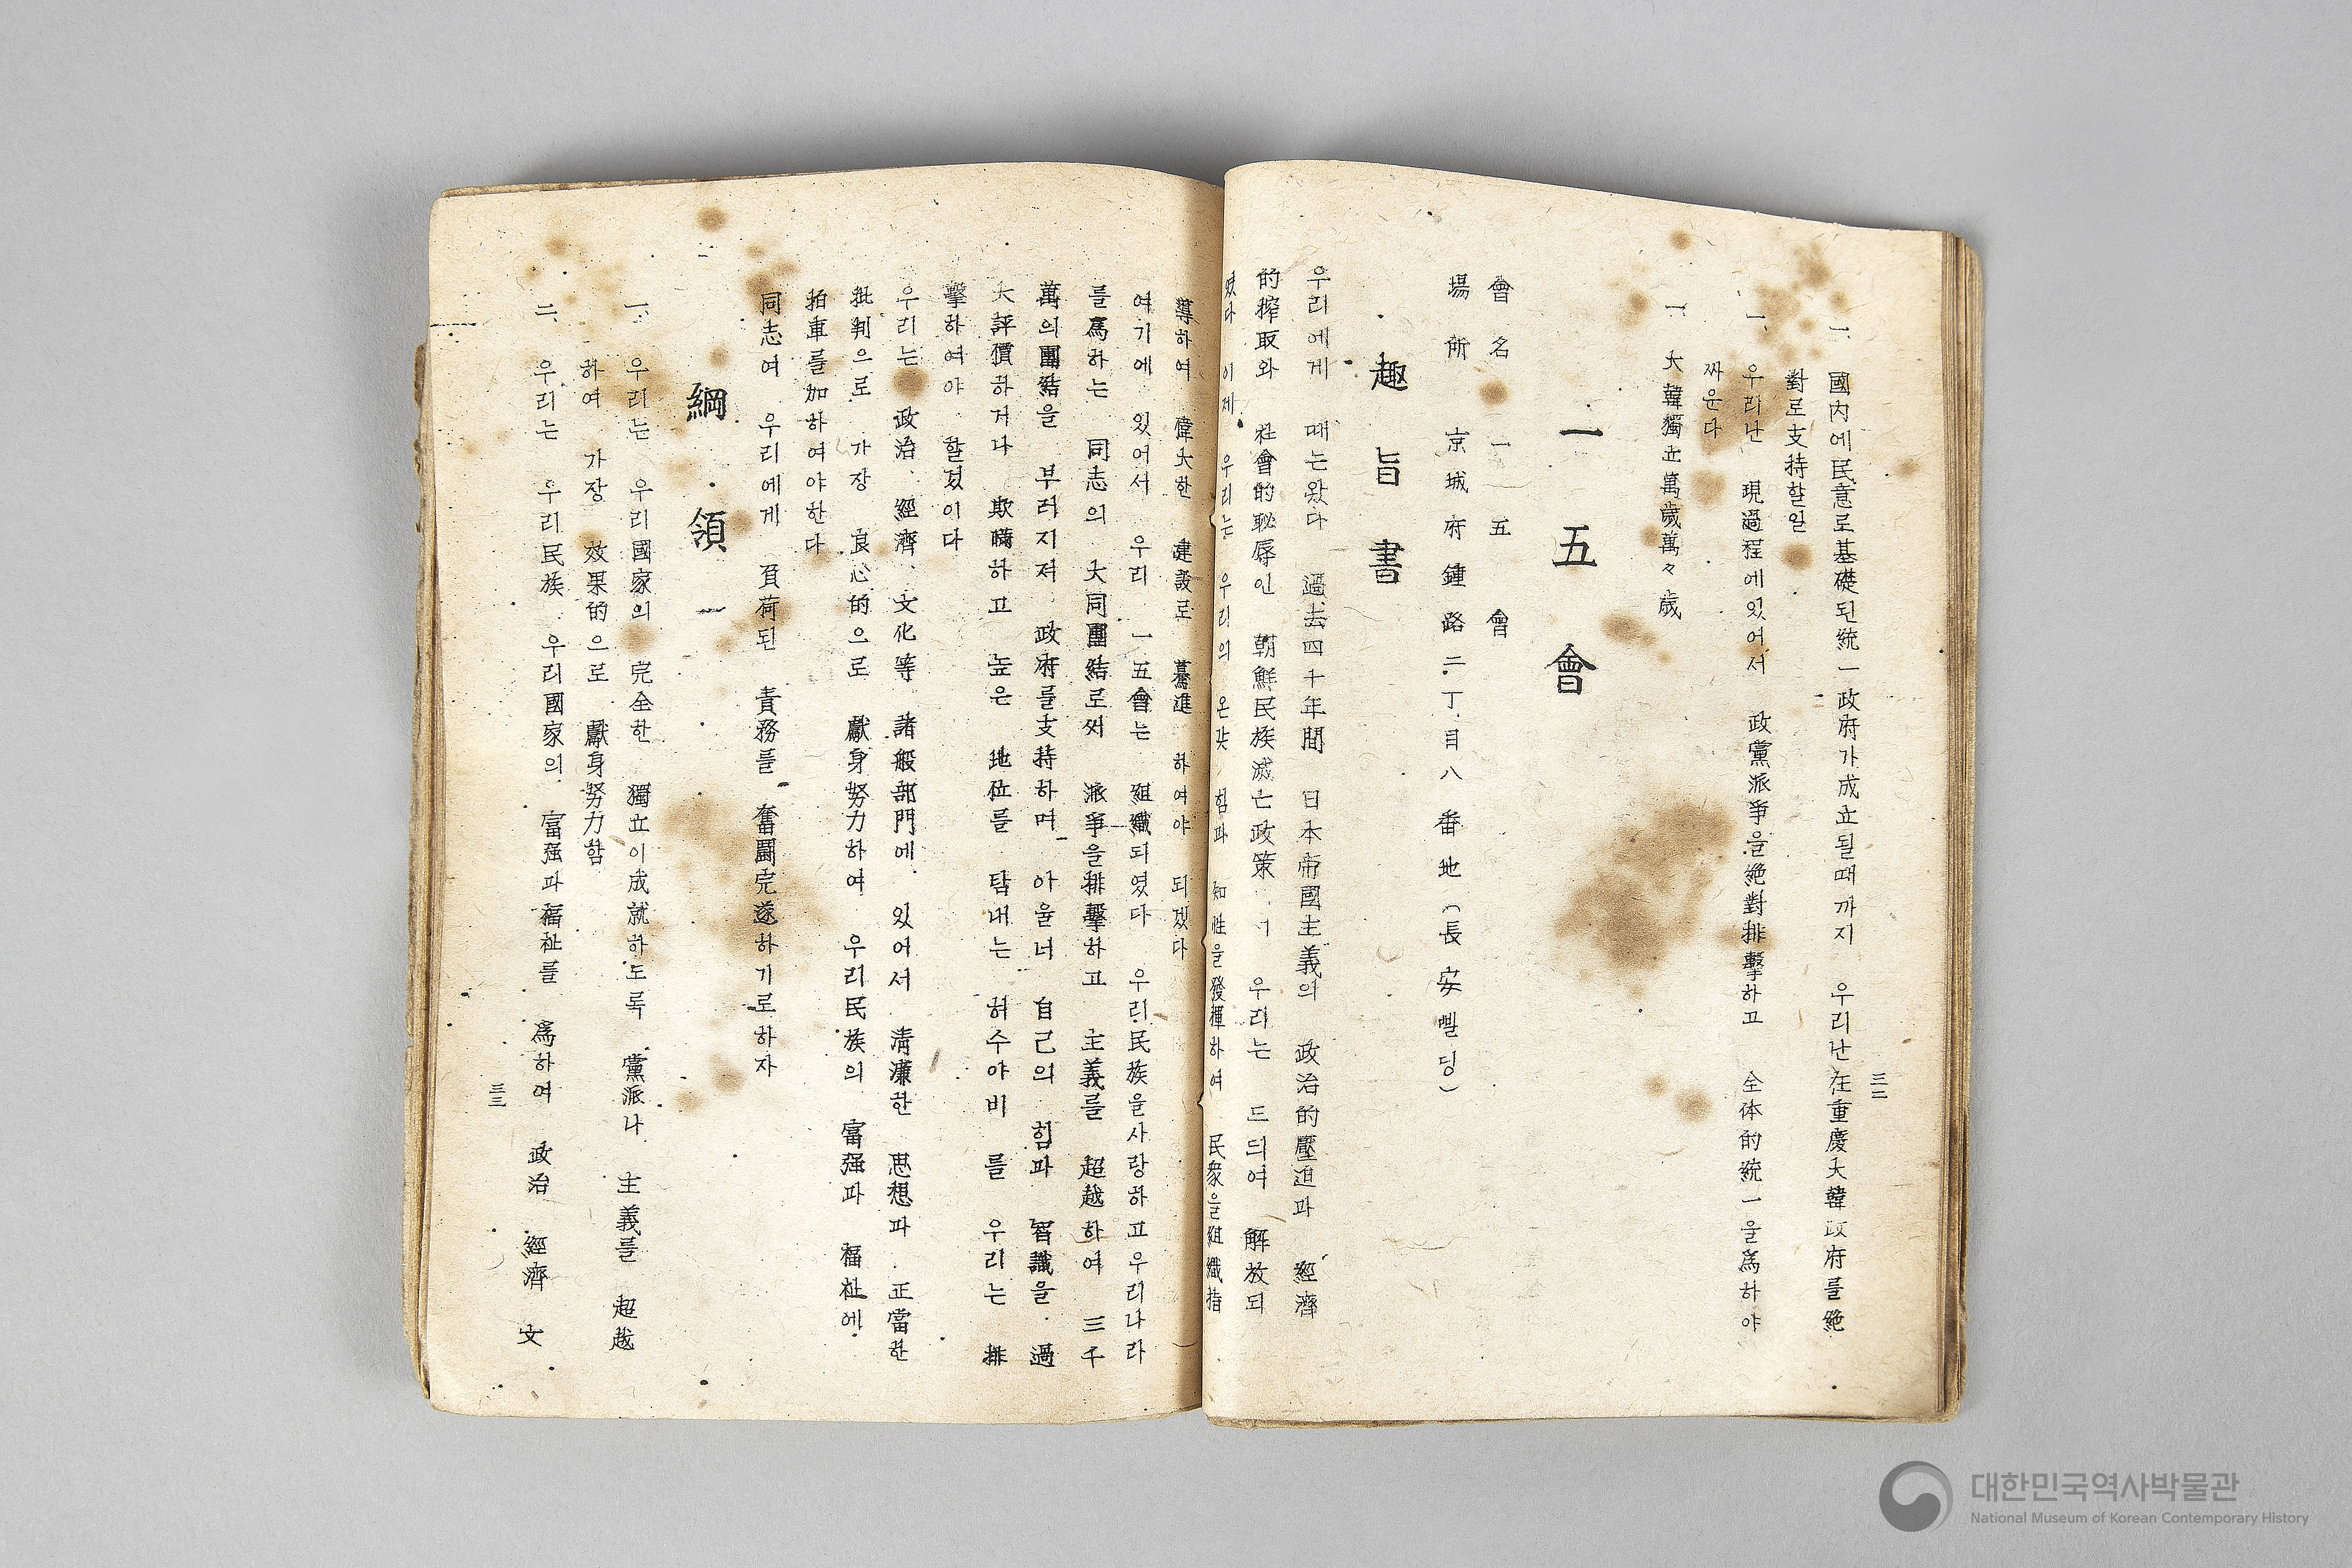 一、國內에民意로基礎된統一政府가成立될때까지 우리난在重慶大韓政府를絶
對로支持할일
一、우리난 現過程에있어서 政黨派爭을絶對排擊하고 全体的統一을爲하야
싸운다
一、大韓獨立萬歲萬々歲
一五會
會名 一五會
場所 京城府鍾路二丁目八番地(長安삘딍)
趣旨書
우리에게 때는왔다 過去四十年間 日本帝國主義의 政治的壓迫과 經濟
的搾取와 社會的恥辱인 朝鮮民族滅亡政策 우리는 드듸여 解放되
였다 이제 우리는 우리의 온갖 힘과 知性을發揮하여 民衆을組織指
導하여 偉大한 建設로 驀進 하여야 되겠다
여기에 있어서 우리 一五會는 組織되였다 우리民族을사랑하고우리나라
를爲하는 同志의 大同團結로써 派爭을排擊하고 主義를 超越하여 三千
萬의團結을 부러지저 政府를支持하며 아울너 自己의 힘과 智識을 過
大評價하거나 欺瞞하고 높은 地位를 탐내는 허수아비 를 우리는 排
擊하여야 할겄이다
우리는 政治、經濟、文化等 諸般部門에 있어서 淸濂한 思想과 正當한
批判으로 가장 良心的으로 獻身努力하여 우리民族의 富强과 福祉에
拍車를加하여야한다
同志여 우리에게 負荷된 責務를 奮鬪完遂하기로하자
綱領
一、우리는 우리國家의 完全한 獨立이成就하도록 黨派나 主義를 超越
하여 가장 效果的으로 獻身努力함
二、우리는 우리民族 우리國家의 富强과福祉를 爲하여 政治 經濟 文
三二
三三
대한민국역사박물관
National Museum of Korean Contemporary History